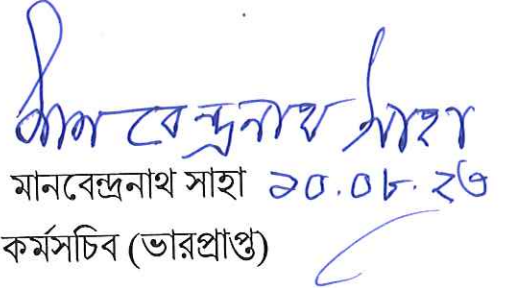 মানবেন্দ্রনাথ সাহা
মানবেন্দ্রনাথ সাহা ১০.০৮.২৩
কর্মসচিব (ভারপ্রাপ্ত)